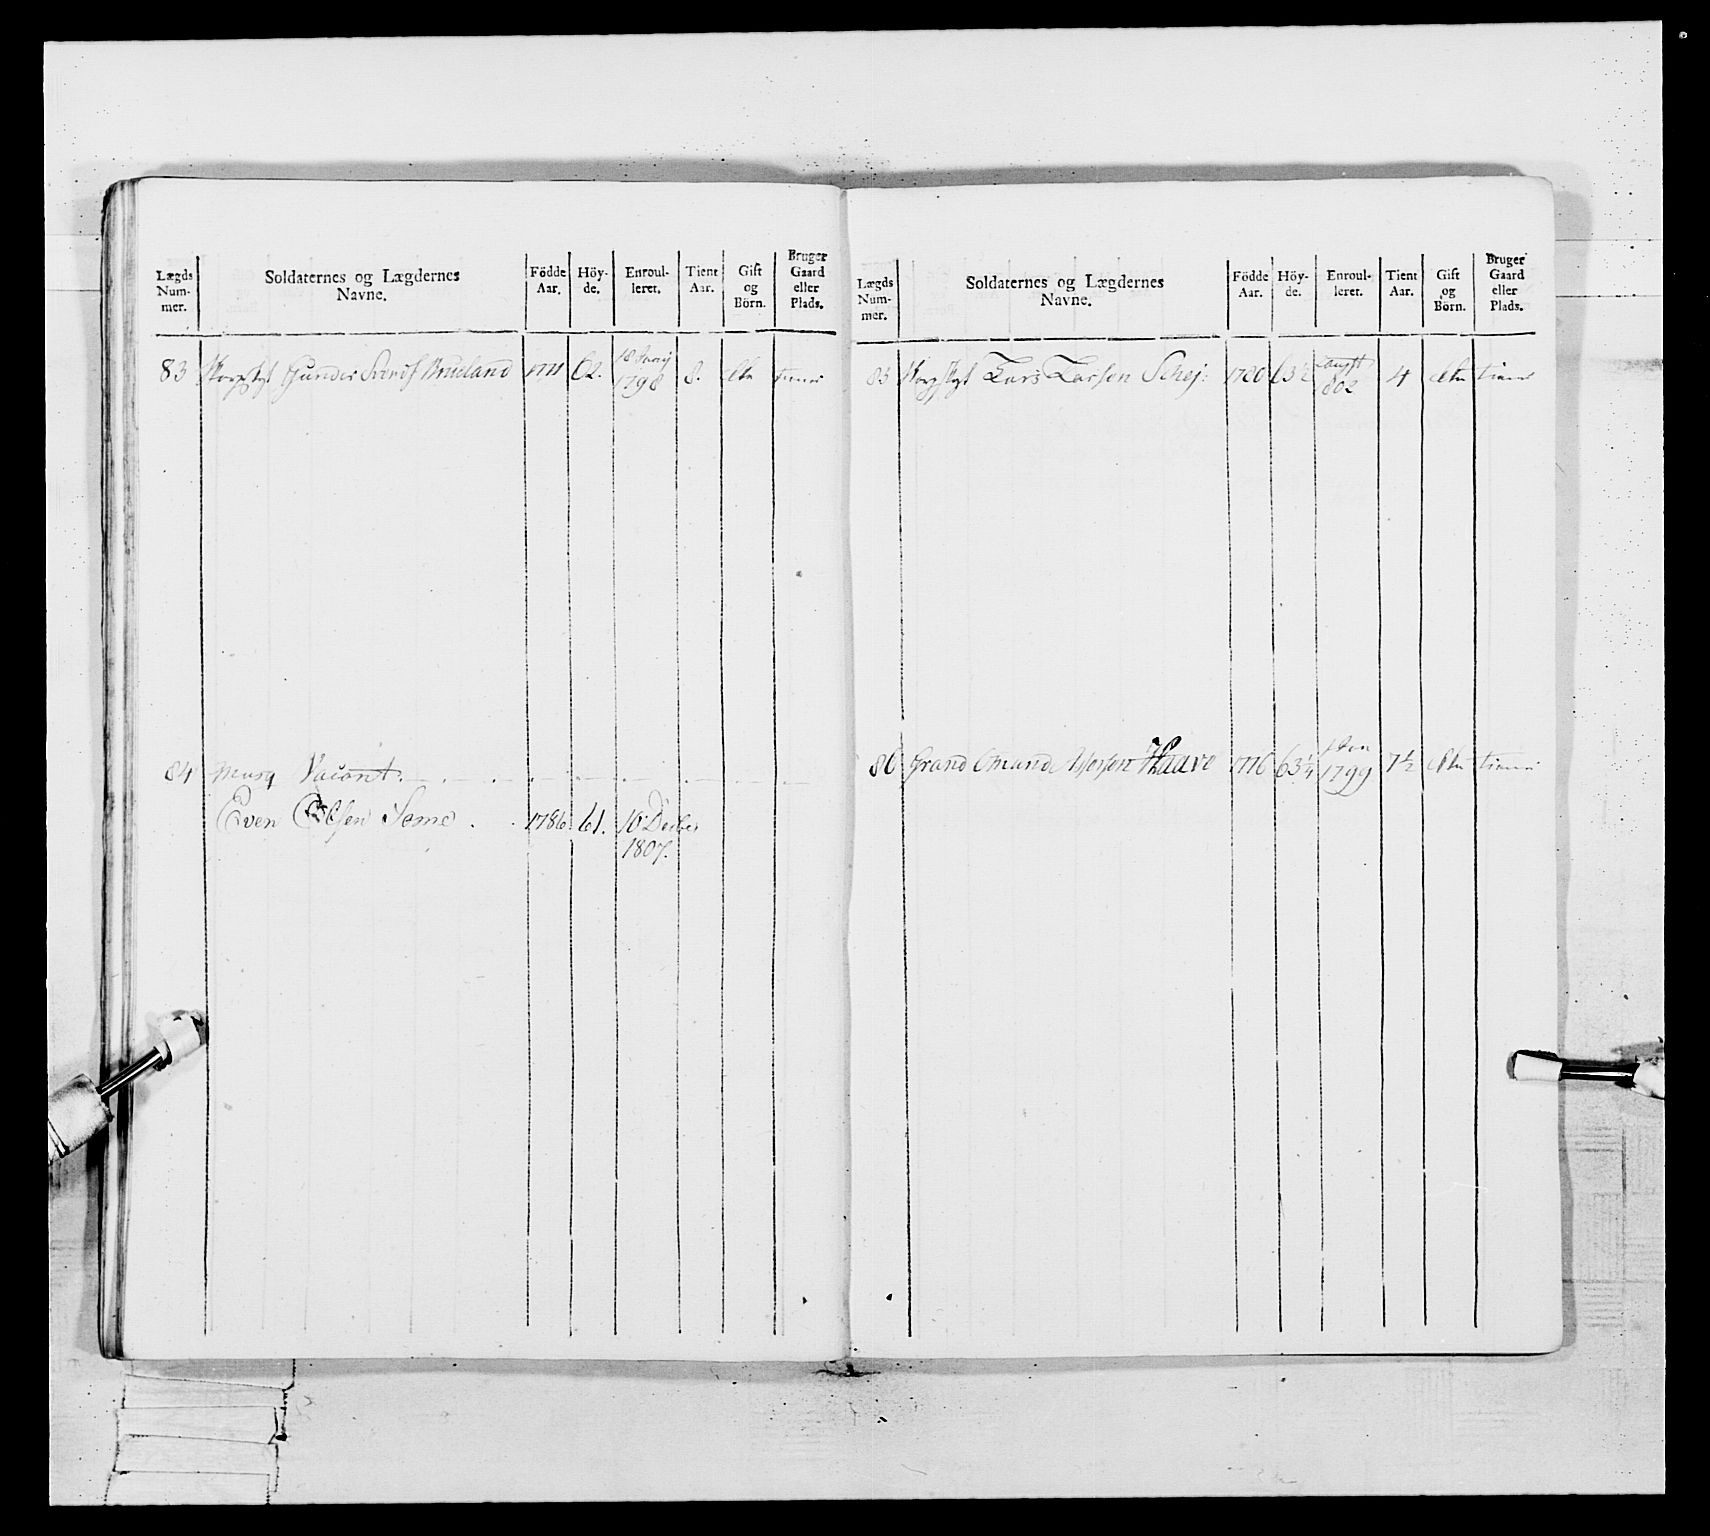 Lægds Num- mer.
Soldaternes og Lægdernes Navne.
Födde Aar.
Höy- de.
Enroul- leret.
Tient Aar.
Gift og Börn.
Bruger Gaard eller Plads.
83 Gunder 1771 62. 1798 8. tiener
84 Musq Vacant.
Even Olsen Seme 1786 61. 10 Decbr
1807.
Lægds Num- mer.
Soldaternes og Lægdernes Navne.
Födde Aar.
Höy- de.
Enroul- leret.
Tient Aar.
Gift og Börn.
Bruger Gaard eller Plads.
85 Lars Larsen 1780 63½ 802 4 tiener
86 Omund Haave 1776 63¼ 1799 7½ tiener